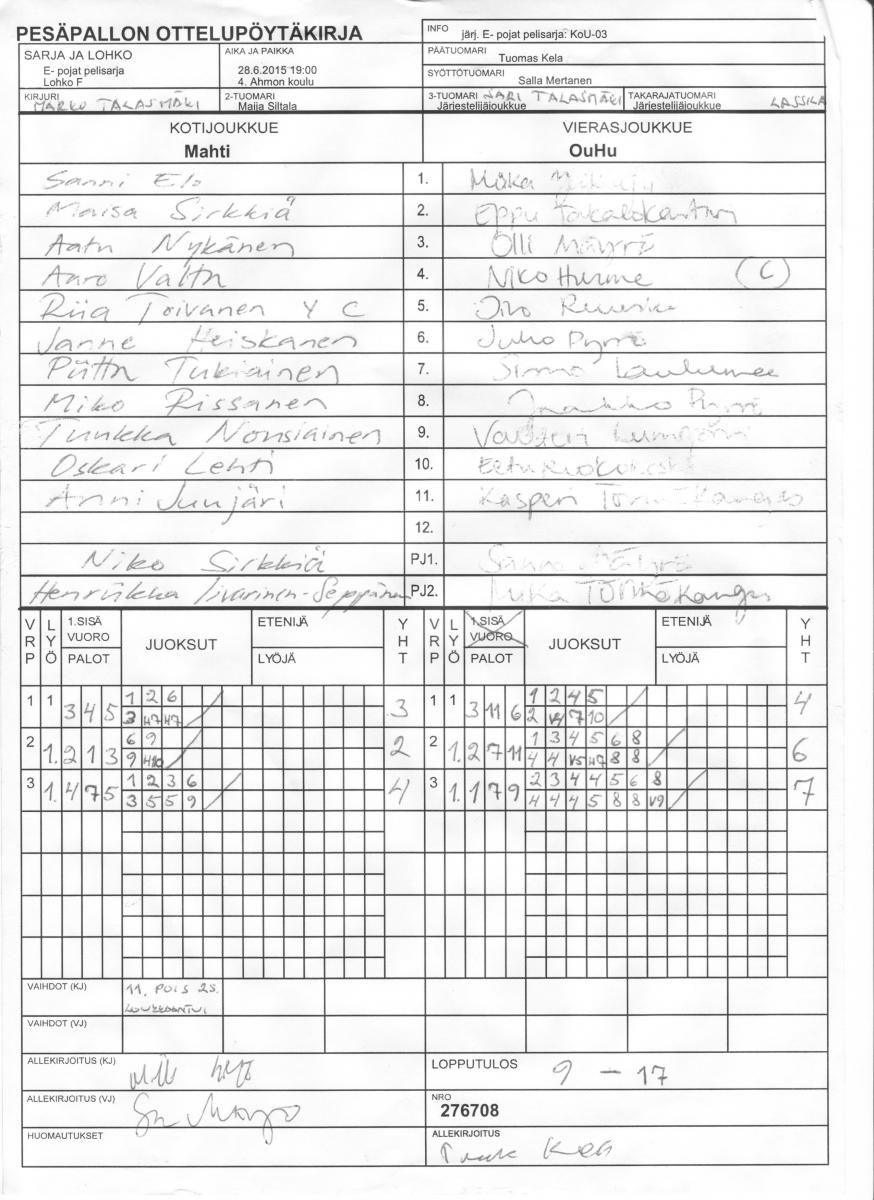 PESÄPALLON OTTELUPÖYTÄKIRJA
INFO järj. E- pojat pelisarja: KoU-03
SARJA JA LOHKO
E- pojat pelisarja
Lohko F
AIKA JA PAIKKA
28.6.2015 19:00
4. Ahmon koulu
PÄÄTUOMARI
Tuomas Kela
SYÖTTÖTUOMARI
Salla Mertanen
KIRJURI
MARKO TALASMÄKI
2-TUOMARI
Maija Siltala
3-TUOMARI SARI TALASMÄKI
Järjestelijäjoukkue
TAKARAJATUOMARI
Järjestelijäjoukkue LASSILA
KOTIJOUKKUE
Mahti
VIERASJOUKKUE
OuHu
Sanni Elo 1. Miska
Maisa Sirkkiä 2. Eppu Takalokastari
Aatu Nykänen 3. Olli Mäyrä
Aaro Valta 4. Niko Hurme (C)
Riia Toivanen Y C 5.
Janne Heiskanen 6. Juho Pyrrö
Piitta Tukiainen 7. Simo
Miko Rissanen 8. Jaakko
Tuukka Nousiainen 9. Valtteri
Oskari Lehti 10. Eetu
Anni Juujäri 11. Kasperi Törmäkangas
12.
Niko Sirkkiä PJ1. Sanna Mäyrä
Henriikka Iivarinen-Seppänen PJ2. Mika Törmäkangas
VRP LYÖ 1.SISÄ VUORO PALOT JUOKSUT ETENIJÄ LYÖJÄ YHT VRP LYÖ 1.SISÄ VUORO PALOT JUOKSUT ETENIJÄ LYÖJÄ YHT
1 1 3 4 5 1 2 6 3 1 1 3 11 6 1 2 4 5 4
3 H7 H7 2 V4 7 10
2 1. 2 1 3 6 9 2 2 1. 2 7 11 1 3 4 5 6 8 6
9 H10 4 4 V5 H7 8 8
3 1. 4 7 5 1 2 3 6 4 3 1. 1 7 9 2 3 4 4 5 6 8 7
3 5 5 9 4 4 4 5 8 8 V9
VAIHDOT (KJ) 11. POIS 2S.
LOUKKAANTUI
VAIHDOT (VJ)
ALLEKIRJOITUS (KJ)
LOPPUTULOS 9 – 17
ALLEKIRJOITUS (VJ)
NRO
276708
HUOMAUTUKSET
ALLEKIRJOITUS